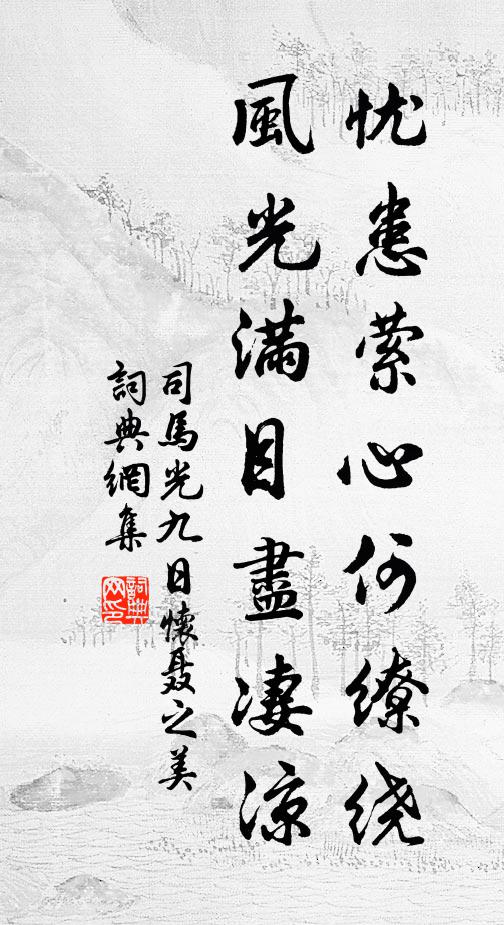 忧患萦心何缭绕
風光满目盡凄凉
司馬光九日懷聂之美
詞典網集
詞典网印